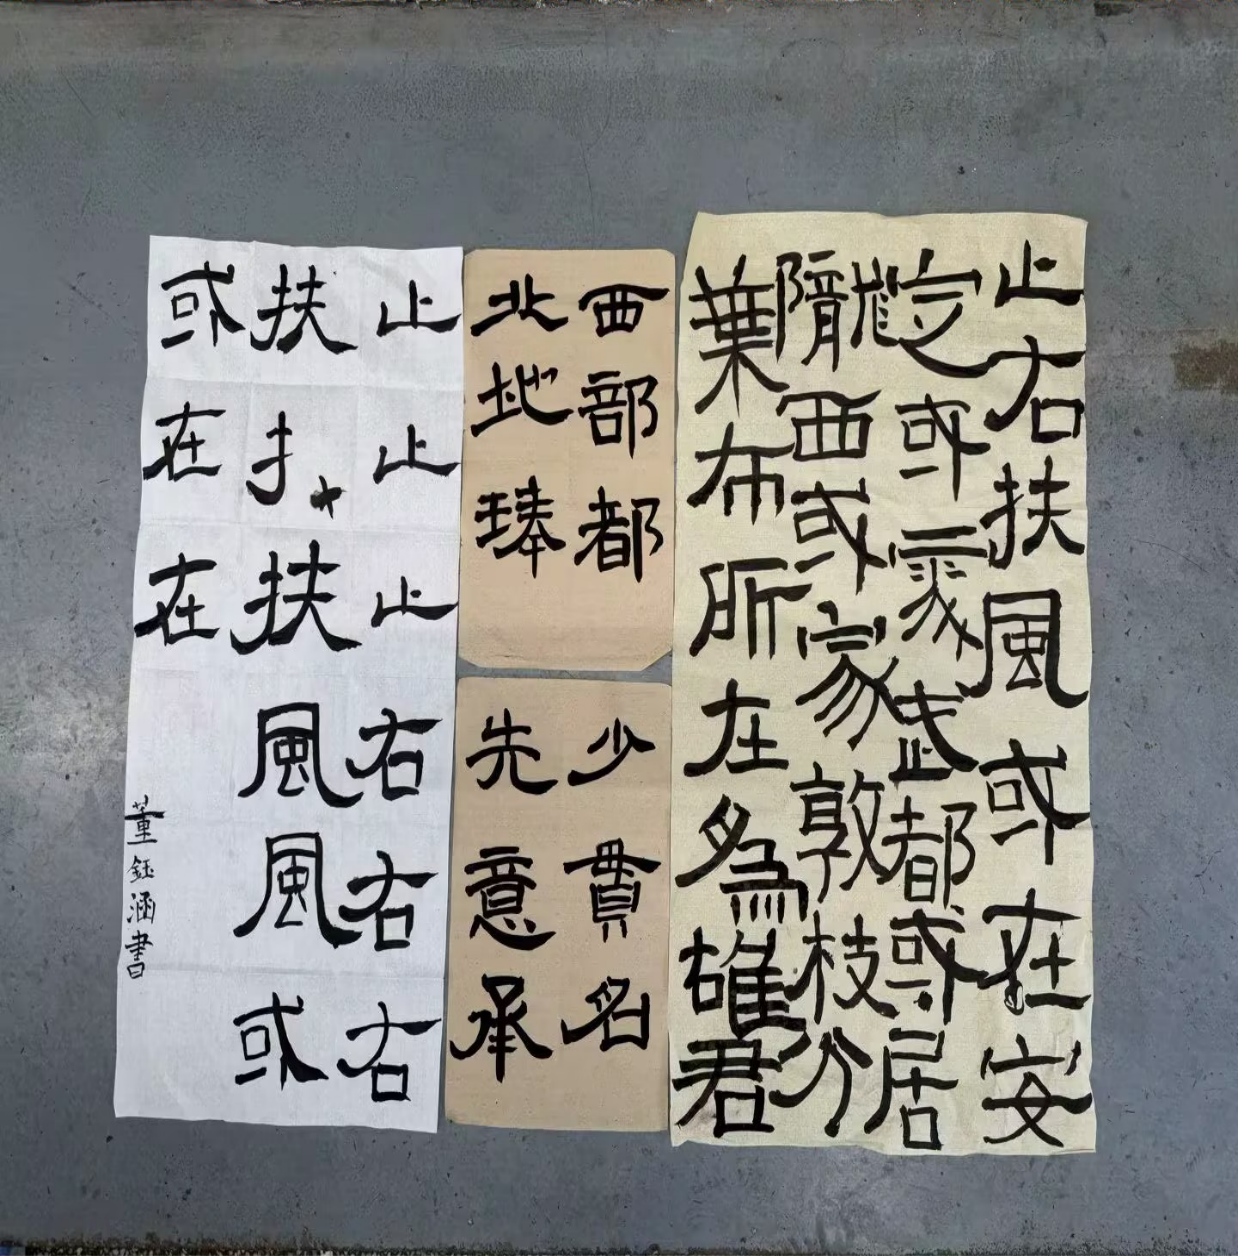 止右扶風或在安
定或處武都或居
隴西或家敦枝分
葉布所在為雄君
西部都
北地琫
少貫名
先意承
止止止右右右
扶扌扶風風或
或在在
董鈺涵書